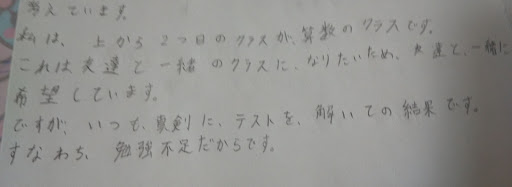 考えています。
私は、上から2つ目のクラスが、算数のクラスです。
これは友達と一緒のクラスに、なりたいため、友達と、一緒に
希望しています。
ですが、いつも、真剣に、テストを、解いての結果です。
すなわち、勉強不足だからです。